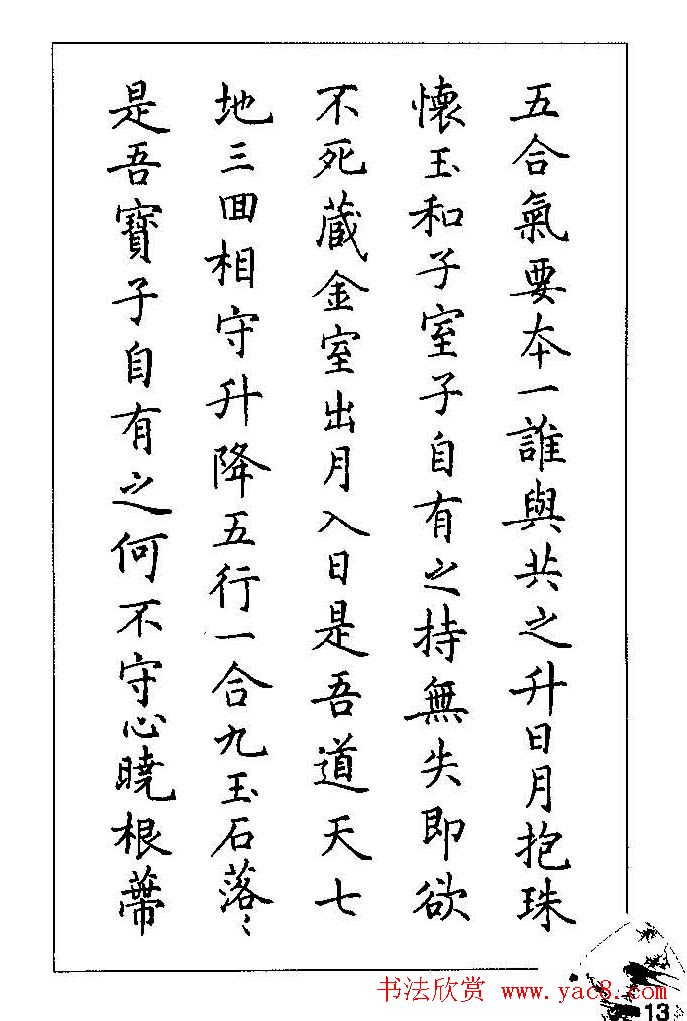 五合氣要本一誰與共之升日月抱珠
懷玉和子室子自有之持無失即欲
不死藏金室出月入日是吾道天七
地三回相守升降五行一合九玉石落〻
是吾寶子自有之何不守心曉根蔕
书法欣赏 www.yac8.com
13